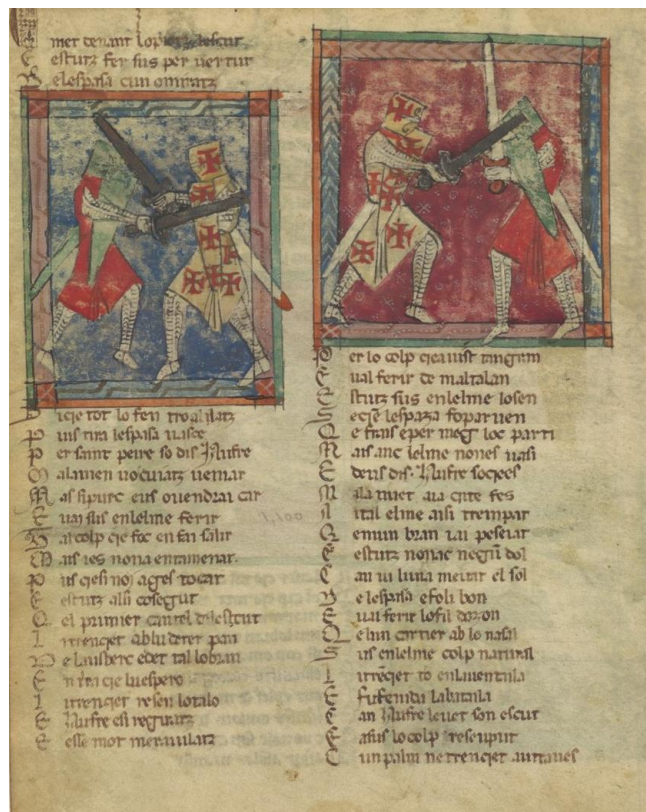 met denant lo pietz lescut
E estutz fer sus per uertut
B elespasa cun omratz
D icie tot lo fen tro al ilatz
P uis tira lespasa uas se
P er saint peire so dis Jaufre
M alamen uo cuiatz ueniar
M as si puec eus o uendrai car
E uai sus en lelme ferir
D al colp qe foc en fai salir
M ais ies non a entamenar
P us qe si noi ages tocat
E estutz a lui cosegut
Q el primier cantel de lescut
L i trenqet ab lu deter pan
D e lausberc e det tal lobran
E n terra qe lu espero
L i trenqet res en lo talo
E Jaufre es se reguratz
E esse mot merauilatz
P er lo colp qe a uist tan gran
E uai ferir de mal talan
E stutz sus en lelme losen
S eqe lespaza fo paruen
E frais e per meg loc parti
M ais anc lelme nones uasi
E deus dis Jaufre so qe es
M ala nuet aia qi te fes
A ital elme aisi trempar
Q e mun bran i ai peseiat
E estutz non ac negun dol
C an ui luna meitat el sol
D e lespasa e fo li bon
E uai ferir lo fil dozon
Q e lun cartier ab lo nasal
S us en lelme colp natural
L i trenqet to en la uentala
E fo fenida la batala
E an Jaufre leuet son escut
E a sus lo colp reseuput
C un palm ne trenqet autaues